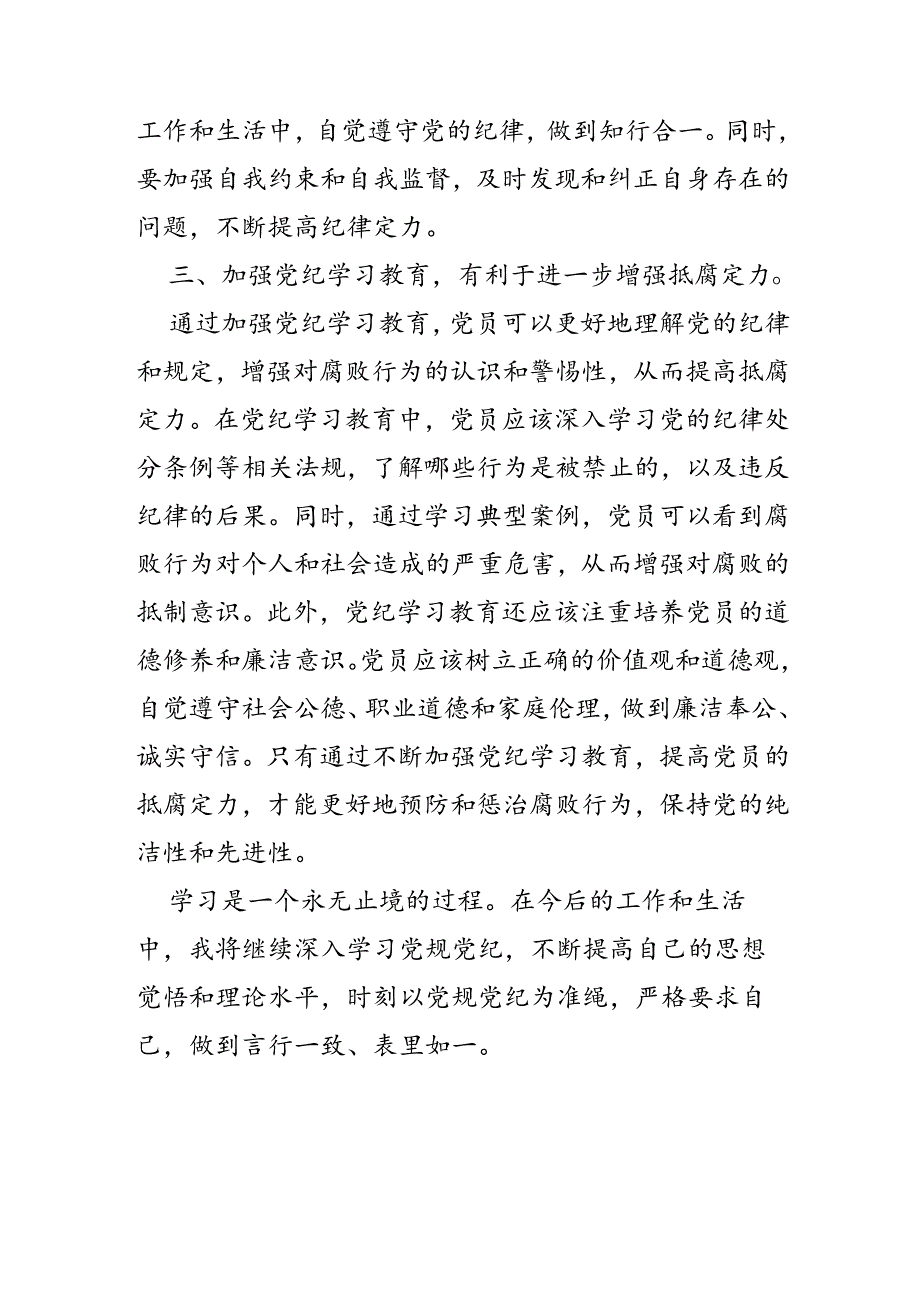 工作和生活中，自觉遵守党的纪律，做到知行合一。同时，
要加强自我约束和自我监督，及时发现和纠正自身存在的
问题，不断提高纪律定力。
三、加强党纪学习教育，有利于进一步增强抵腐定力。
通过加强党纪学习教育，党员可以更好地理解党的纪律
和规定，增强对腐败行为的认识和警惕性，从而提高抵腐
定力。在党纪学习教育中，党员应该深入学习党的纪律处
分条例等相关法规，了解哪些行为是被禁止的，以及违反
纪律的后果。同时，通过学习典型案例，党员可以看到腐
败行为对个人和社会造成的严重危害，从而增强对腐败的
抵制意识。此外，党纪学习教育还应该注重培养党员的道
德修养和廉洁意识。党员应该树立正确的价值观和道德观，
自觉遵守社会公德、职业道德和家庭伦理，做到廉洁奉公、
诚实守信。只有通过不断加强党纪学习教育，提高党员的
抵腐定力，才能更好地预防和惩治腐败行为，保持党的纯
洁性和先进性。
学习是一个永无止境的过程。在今后的工作和生活
中，我将继续深入学习党规党纪，不断提高自己的思想
觉悟和理论水平，时刻以党规党纪为准绳，严格要求自
己，做到言行一致、表里如一。